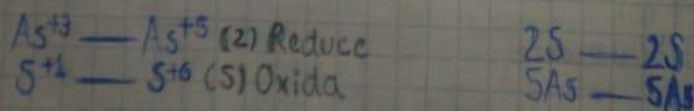 As+3 — As+5 (2) Reduce
S+1 — S+6 (5) Oxida
2S — 2S
5As — 5As